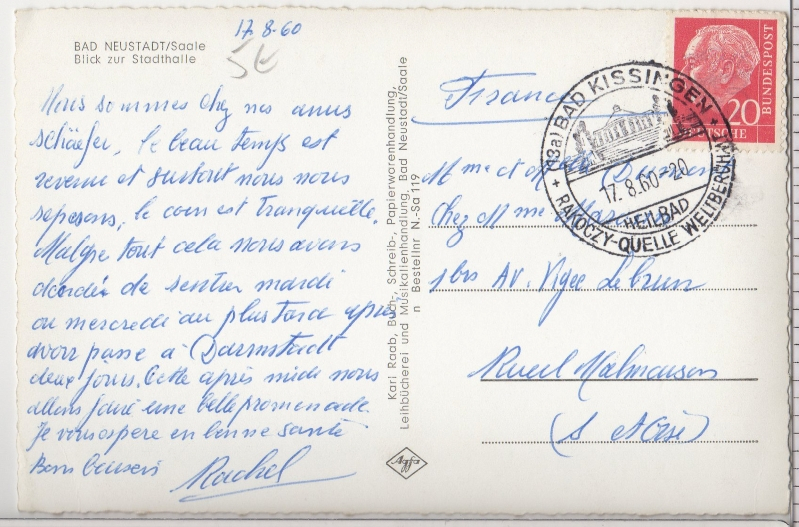 17.8.60
5€
BAD NEUSTADT/Saale
Blick zur Stadthalle
Nous sommes chez nos amis
schäefer, le beau temps est
revenu et surtout nous nous
reposons, le coin est tranquille.
Malgré tout cela nous avons
décidé de rentrer mardi
ou mercredi au plus tard après
avoir passé à Darmstadt
deux jours. Cette après midi nous
allons faire une belle promenade.
Je vous espère en bonne santé
Bons baisers
Rachel
Karl Raab, Buch-, Schreib-, Papierwarenhandlung,
Leihbücherei und Musikalienhandlung, Bad Neustadt/Saale
n Bestellnr N.-Sa 119
Agfa
DEUTSCHE BUNDESPOST
20
(13a) BAD KISSINGEN
17.8.60-20
HEILBAD
+ RAKOCZY-QUELLE WELTBERÜHMT +
France
Mme et
Chez Mme
Av. Vigée Lebrun
Rueil Malmaison
(S et Oise)